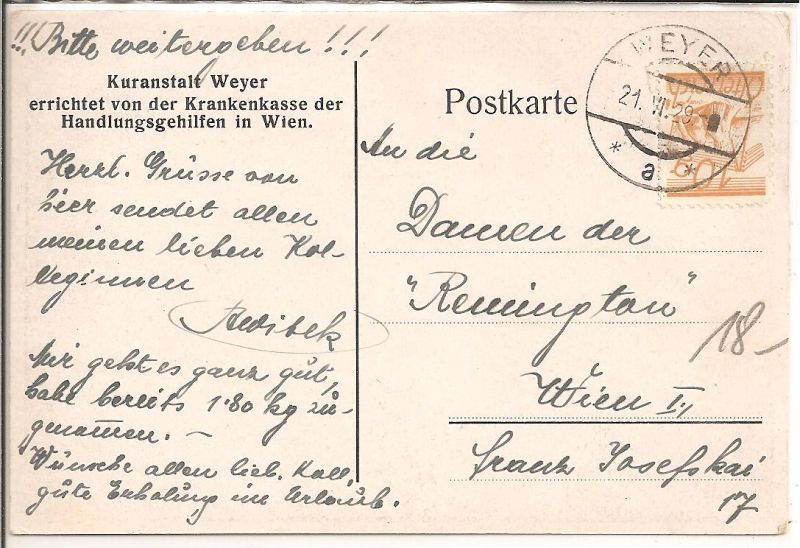 !!! Bitte weitergeben!!!
Kuranstalt Weyer
errichtet von der Krankenkasse der
Handlungsgehilfen in Wien.
Herzl. Grüsse von
hier sendet allen
meinen lieben Kol-
leginnen
Mir geht es ganz gut,
habe bereits 1·80 kg zu-
genommen. –
Wünsche allen lieb. Koll.
gute Erholung im Urlaub.
Postkarte
WEYER
21. VI. 28
* a *
An die
Damen der
"Remington"
18-
Wien I.,
Franz Josefskai
17